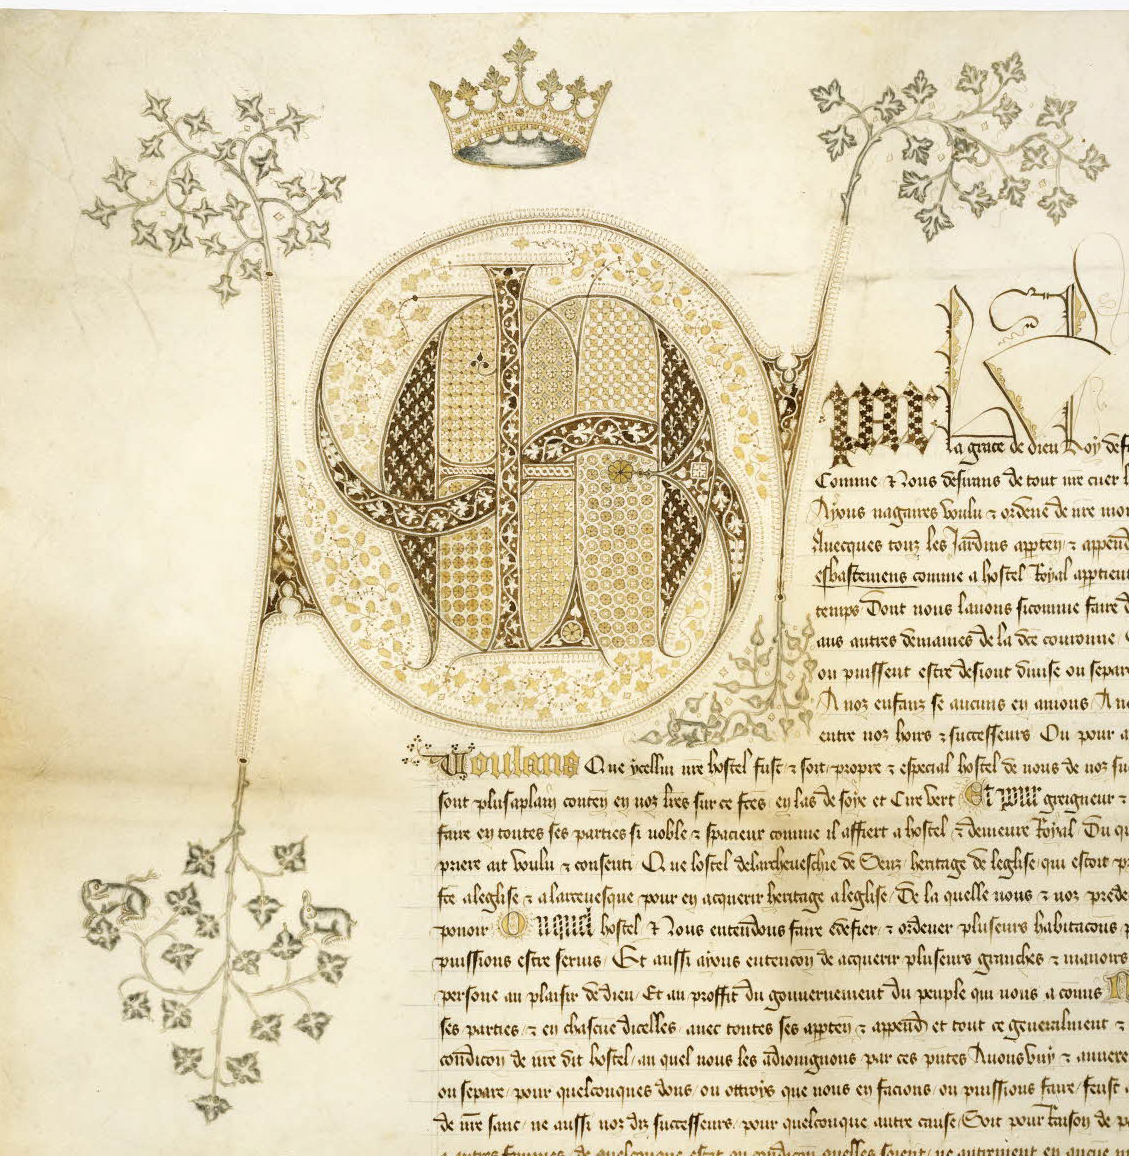 par la grace de dieu Roy de f
Comme Nous desirans de tout nre cuer l
Ayons nagaires voulu ⁊ ordene de nre mo
Avecques touz les Jardins appten ⁊ append
esbastemens comme a hostel Royal apptien
temps Dont nous lavons sicomme faire d
aus autres demaines de la dce couronne
ou puissent estre desiont divise ou separe
A noz enfanz se aucuns en avions
entre noz hoirs ⁊ successeurs Ou pour a
Voulans Que ycellui nre hostel fust ⁊ soit propre ⁊ especial hostel de nous de noz su
sont plus aplain conten en noz lres sur ce fces en las de soye et Cire vert Et pour greigneur ⁊
faire en toutes ses parties si noble ⁊ spacieux comme il affiert a hostel ⁊ demeure Royal Du qu
priere ait voulu ⁊ consenti Que lostel delarcheveschie de Senz heritage de leglise qui estoit p
fce aleglise ⁊ alarcevesque pour en acquerir heritage aleglise De la quelle nous ⁊ noz prede
povoir Ou quel hostel Nous entendons faire edefier ⁊ ordener pluseurs habitacons p
puissions estre servis Et aussi ayons entencon de acquerir pluseurs granches ⁊ manoirs
persone au plaisir de dieu Et au proffit du gouvernement du peuple qui nous a comis N
ses parties ⁊ en chascue dicelles avec toutes ses appten ⁊ append et tout ce generalment ⁊
condicon de nre dit hostel au quel nous les adioingnons par ces pntes Avons uny ⁊ annexe
ou separe pour quelconques dons ou ottroys que nous en facions ou puissions faire feust
de nre sanc ne aussi noz diz successeurs pour quelconque autre cause Soit pour Raison de p
a autres femmes de quelconque estat ou condicon quelles soient ne autrement en aucue m